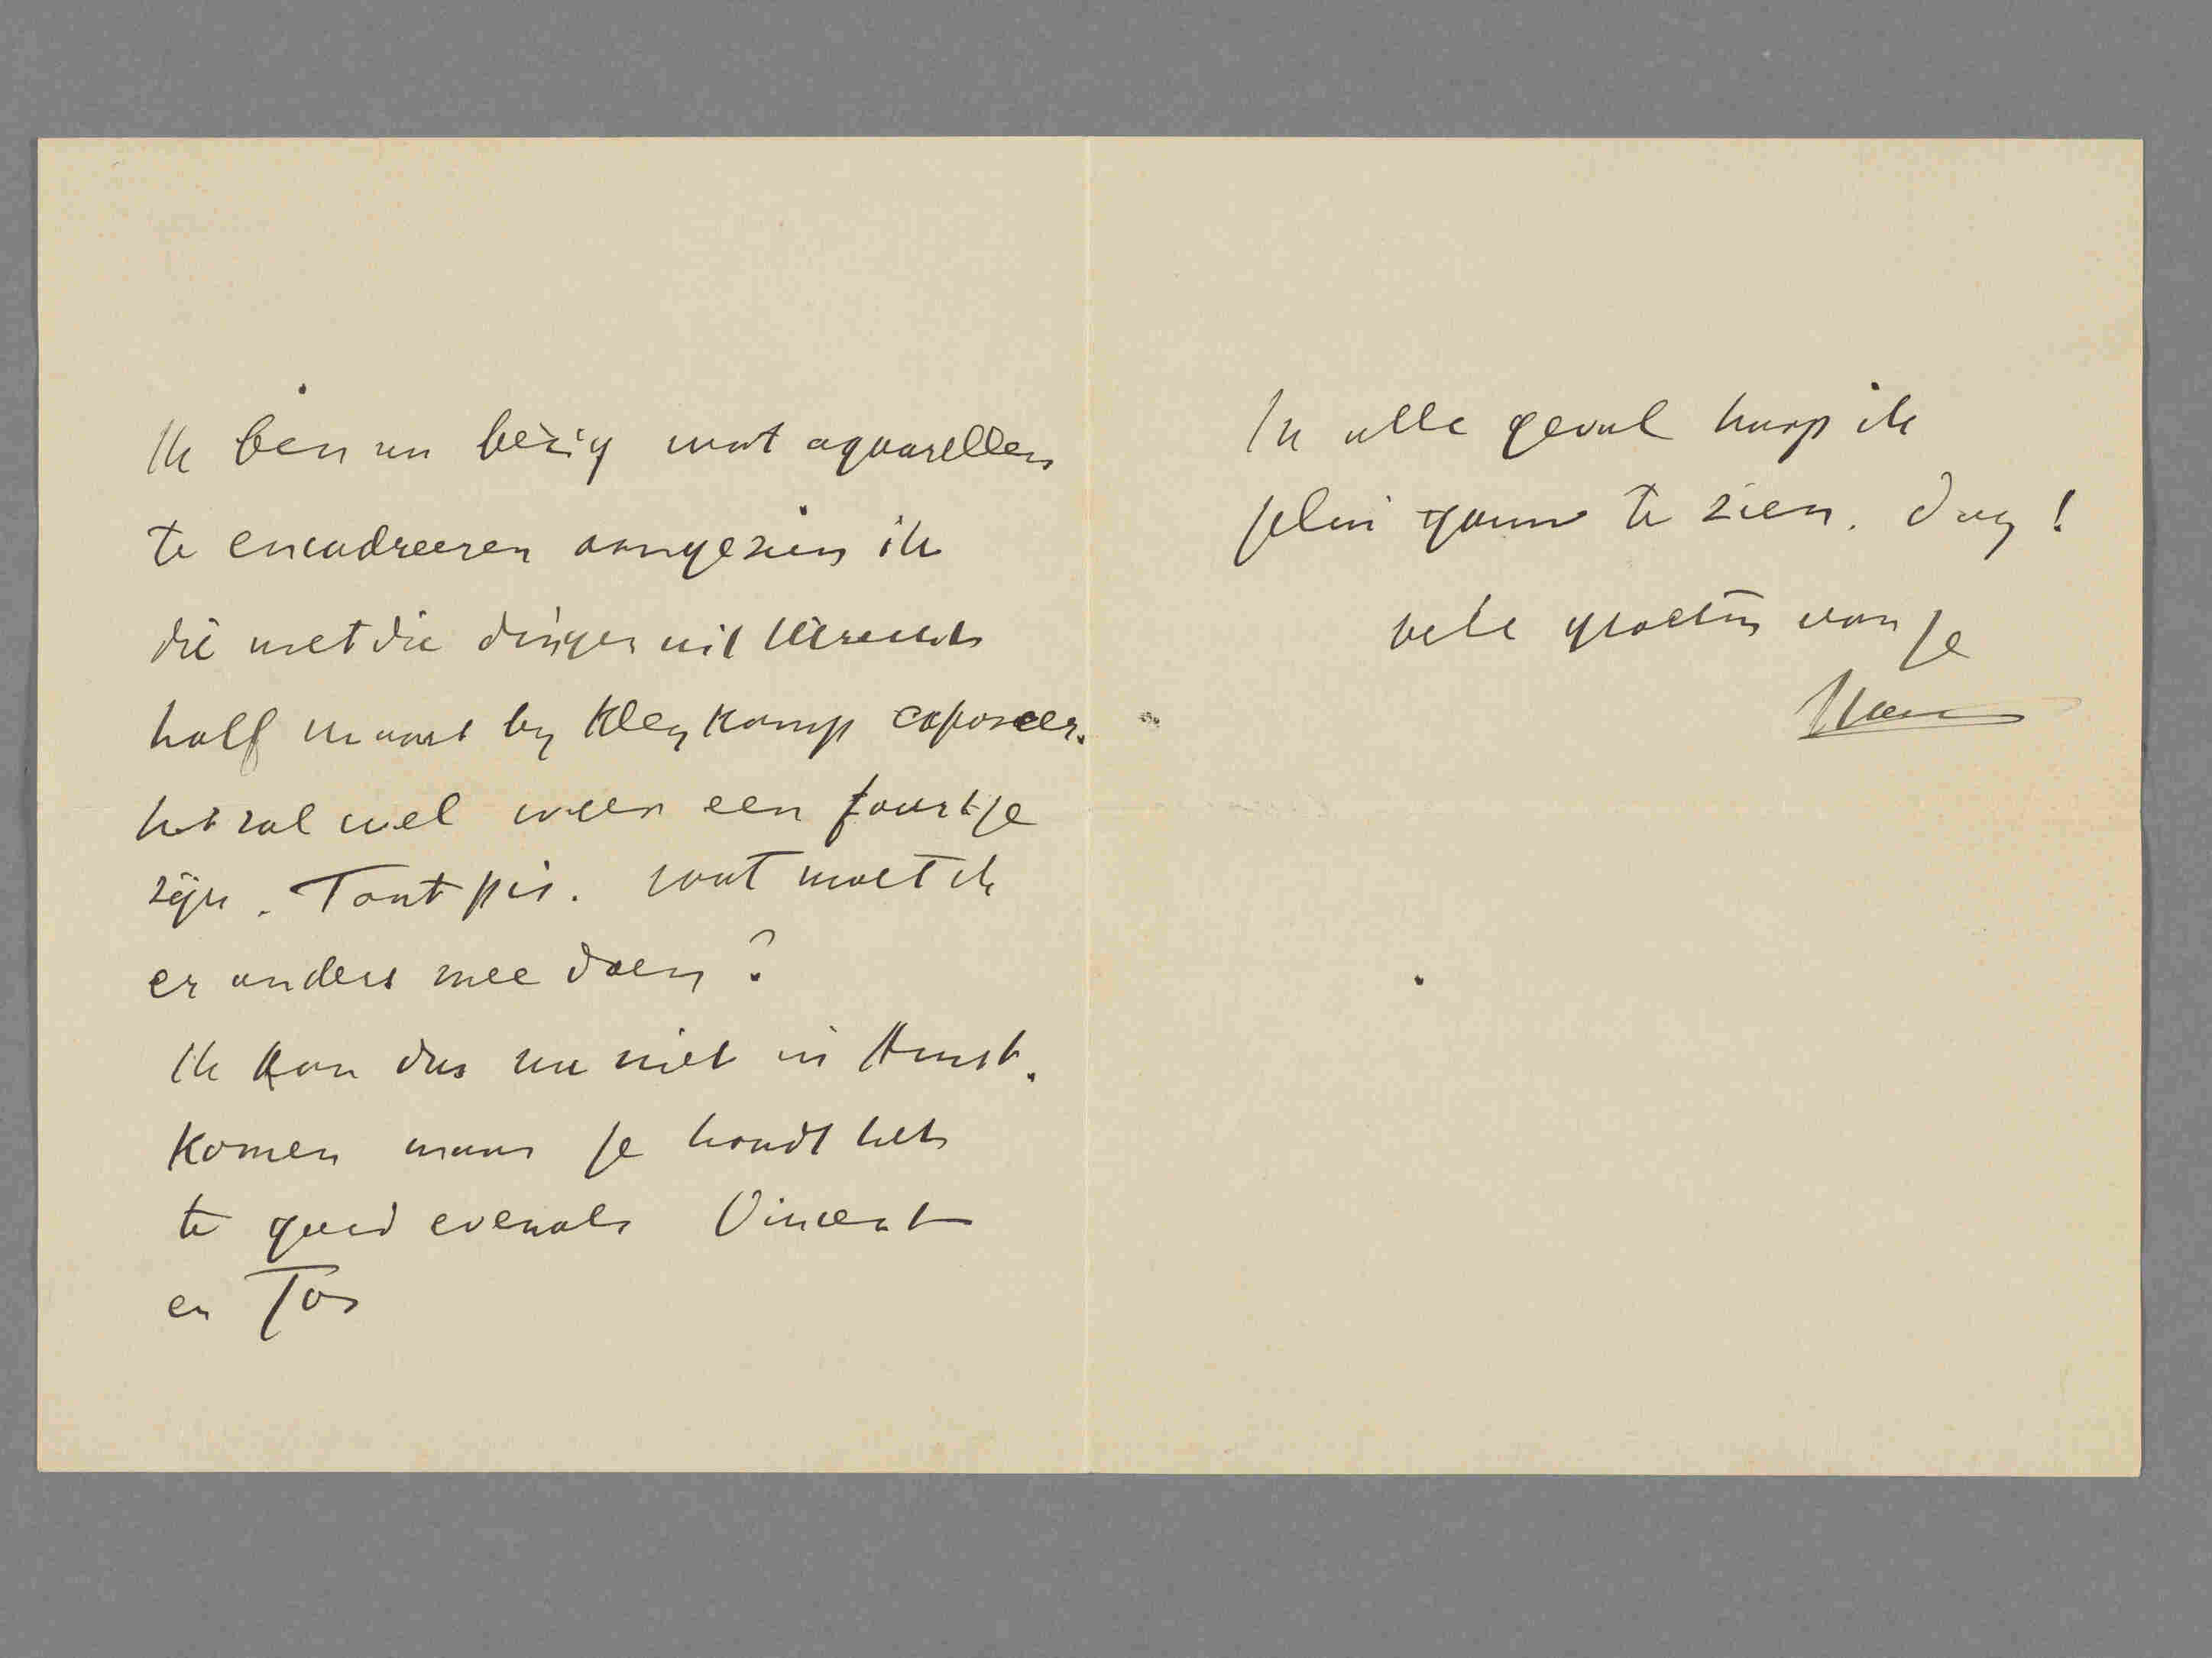 Ik ben nu bezig wat aquarellen
te encadreeren aangezien ik
die met die dingen uit Utrecht
half maart by Kleykamp exposeer.
het zal wel weer een fourtje
zijn. Tant pis. wat moet ik
er anders mee doen?
Ik kan dus nu niet in Amst.
komen maar je houdt het
te goed evenals Vincent
en Tos
In alle geval hoop ik
jelui gauw te zien. dag!
vele groeten van je